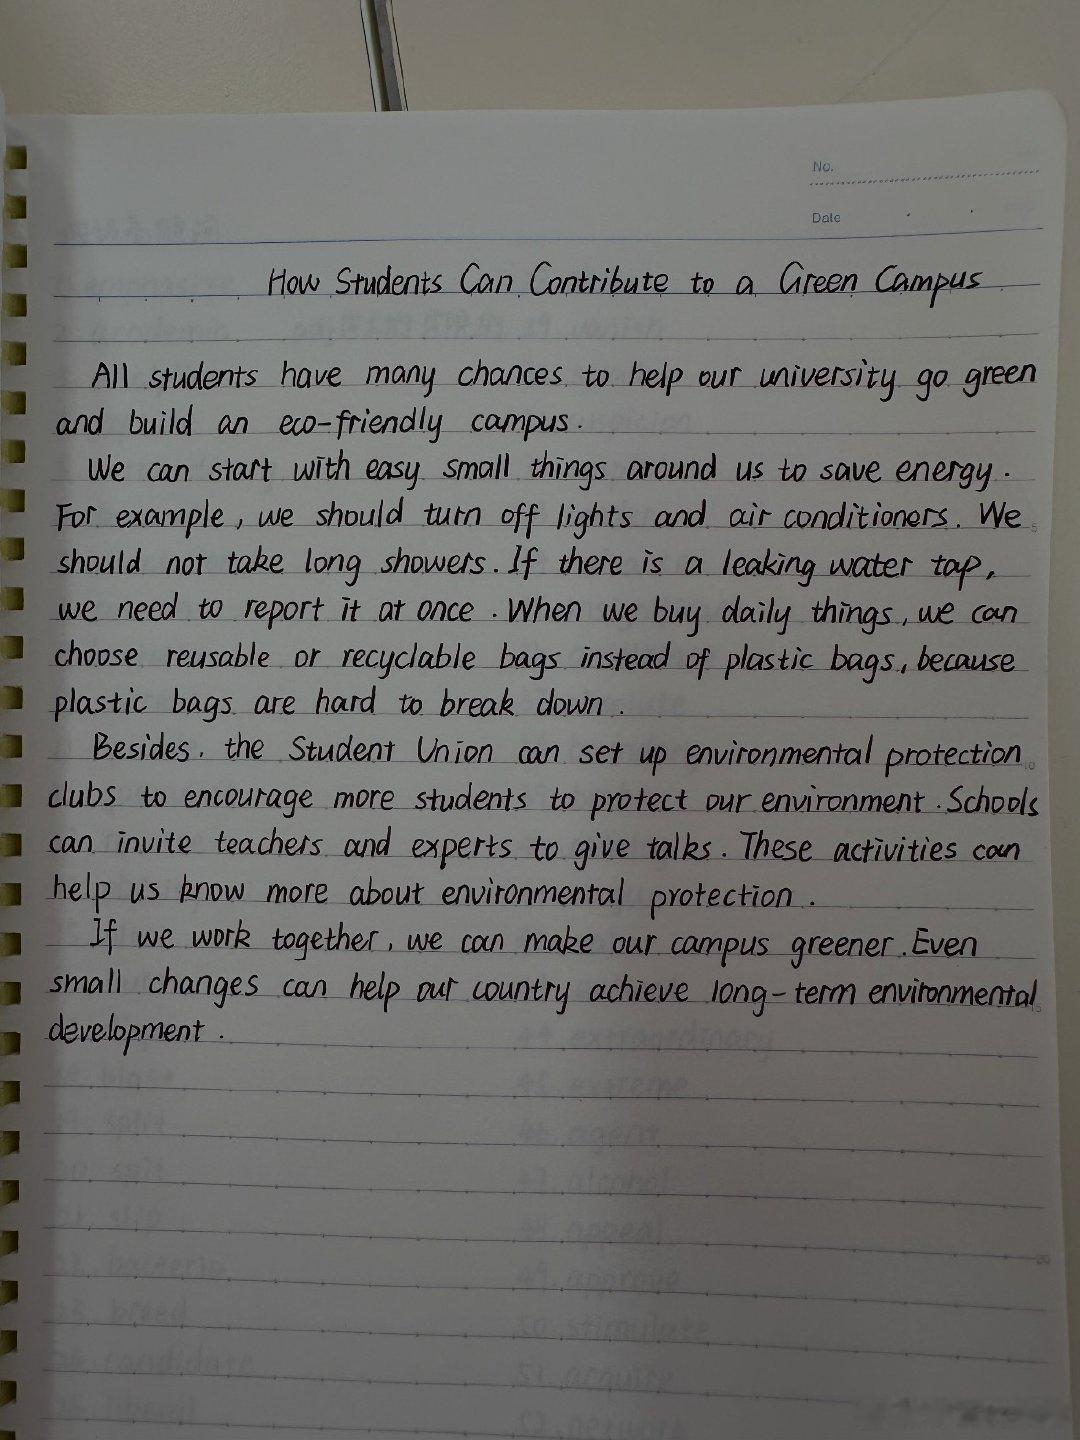 No.
Date
How Students Can Contribute to a Green Campus
All students have many chances to help our university go green
and build an eco-friendly campus.
We can start with easy small things around us to save energy.
For example, we should turn off lights and air conditioners. We
should not take long showers. If there is a leaking water tap,
we need to report it at once. When we buy daily things, we can
choose reusable or recyclable bags instead of plastic bags, because
plastic bags are hard to break down.
Besides, the Student Union can set up environmental protection
clubs to encourage more students to protect our environment. Schools
can invite teachers and experts to give talks. These activities can
help us know more about environmental protection.
If we work together, we can make our campus greener. Even
small changes can help our country achieve long-term environmental
development.